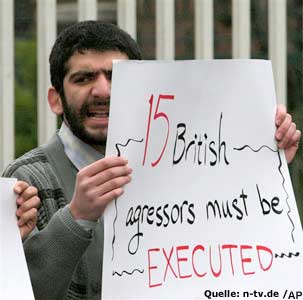 15
British
agressors must be
EXECUTED
Quelle: n-tv.de /AP